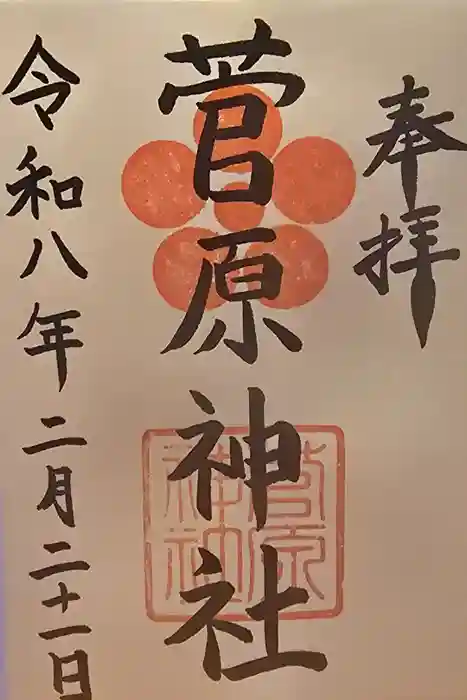 奉拝
菅原神社
令和八年二月二十一日
菅原
神社